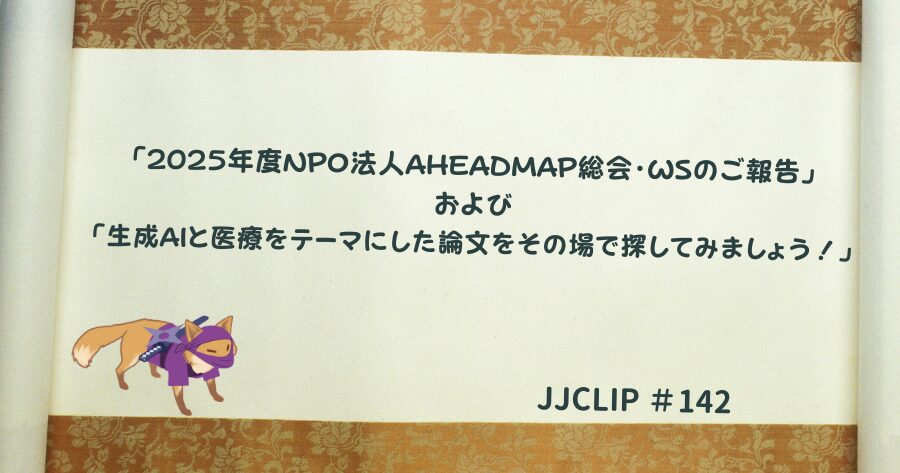 「2025年度NPO法人AHEADMAP総会・WSのご報告」
および
「生成AIと医療をテーマにした論文をその場で探してみましょう！」
JJCLIP ＃142